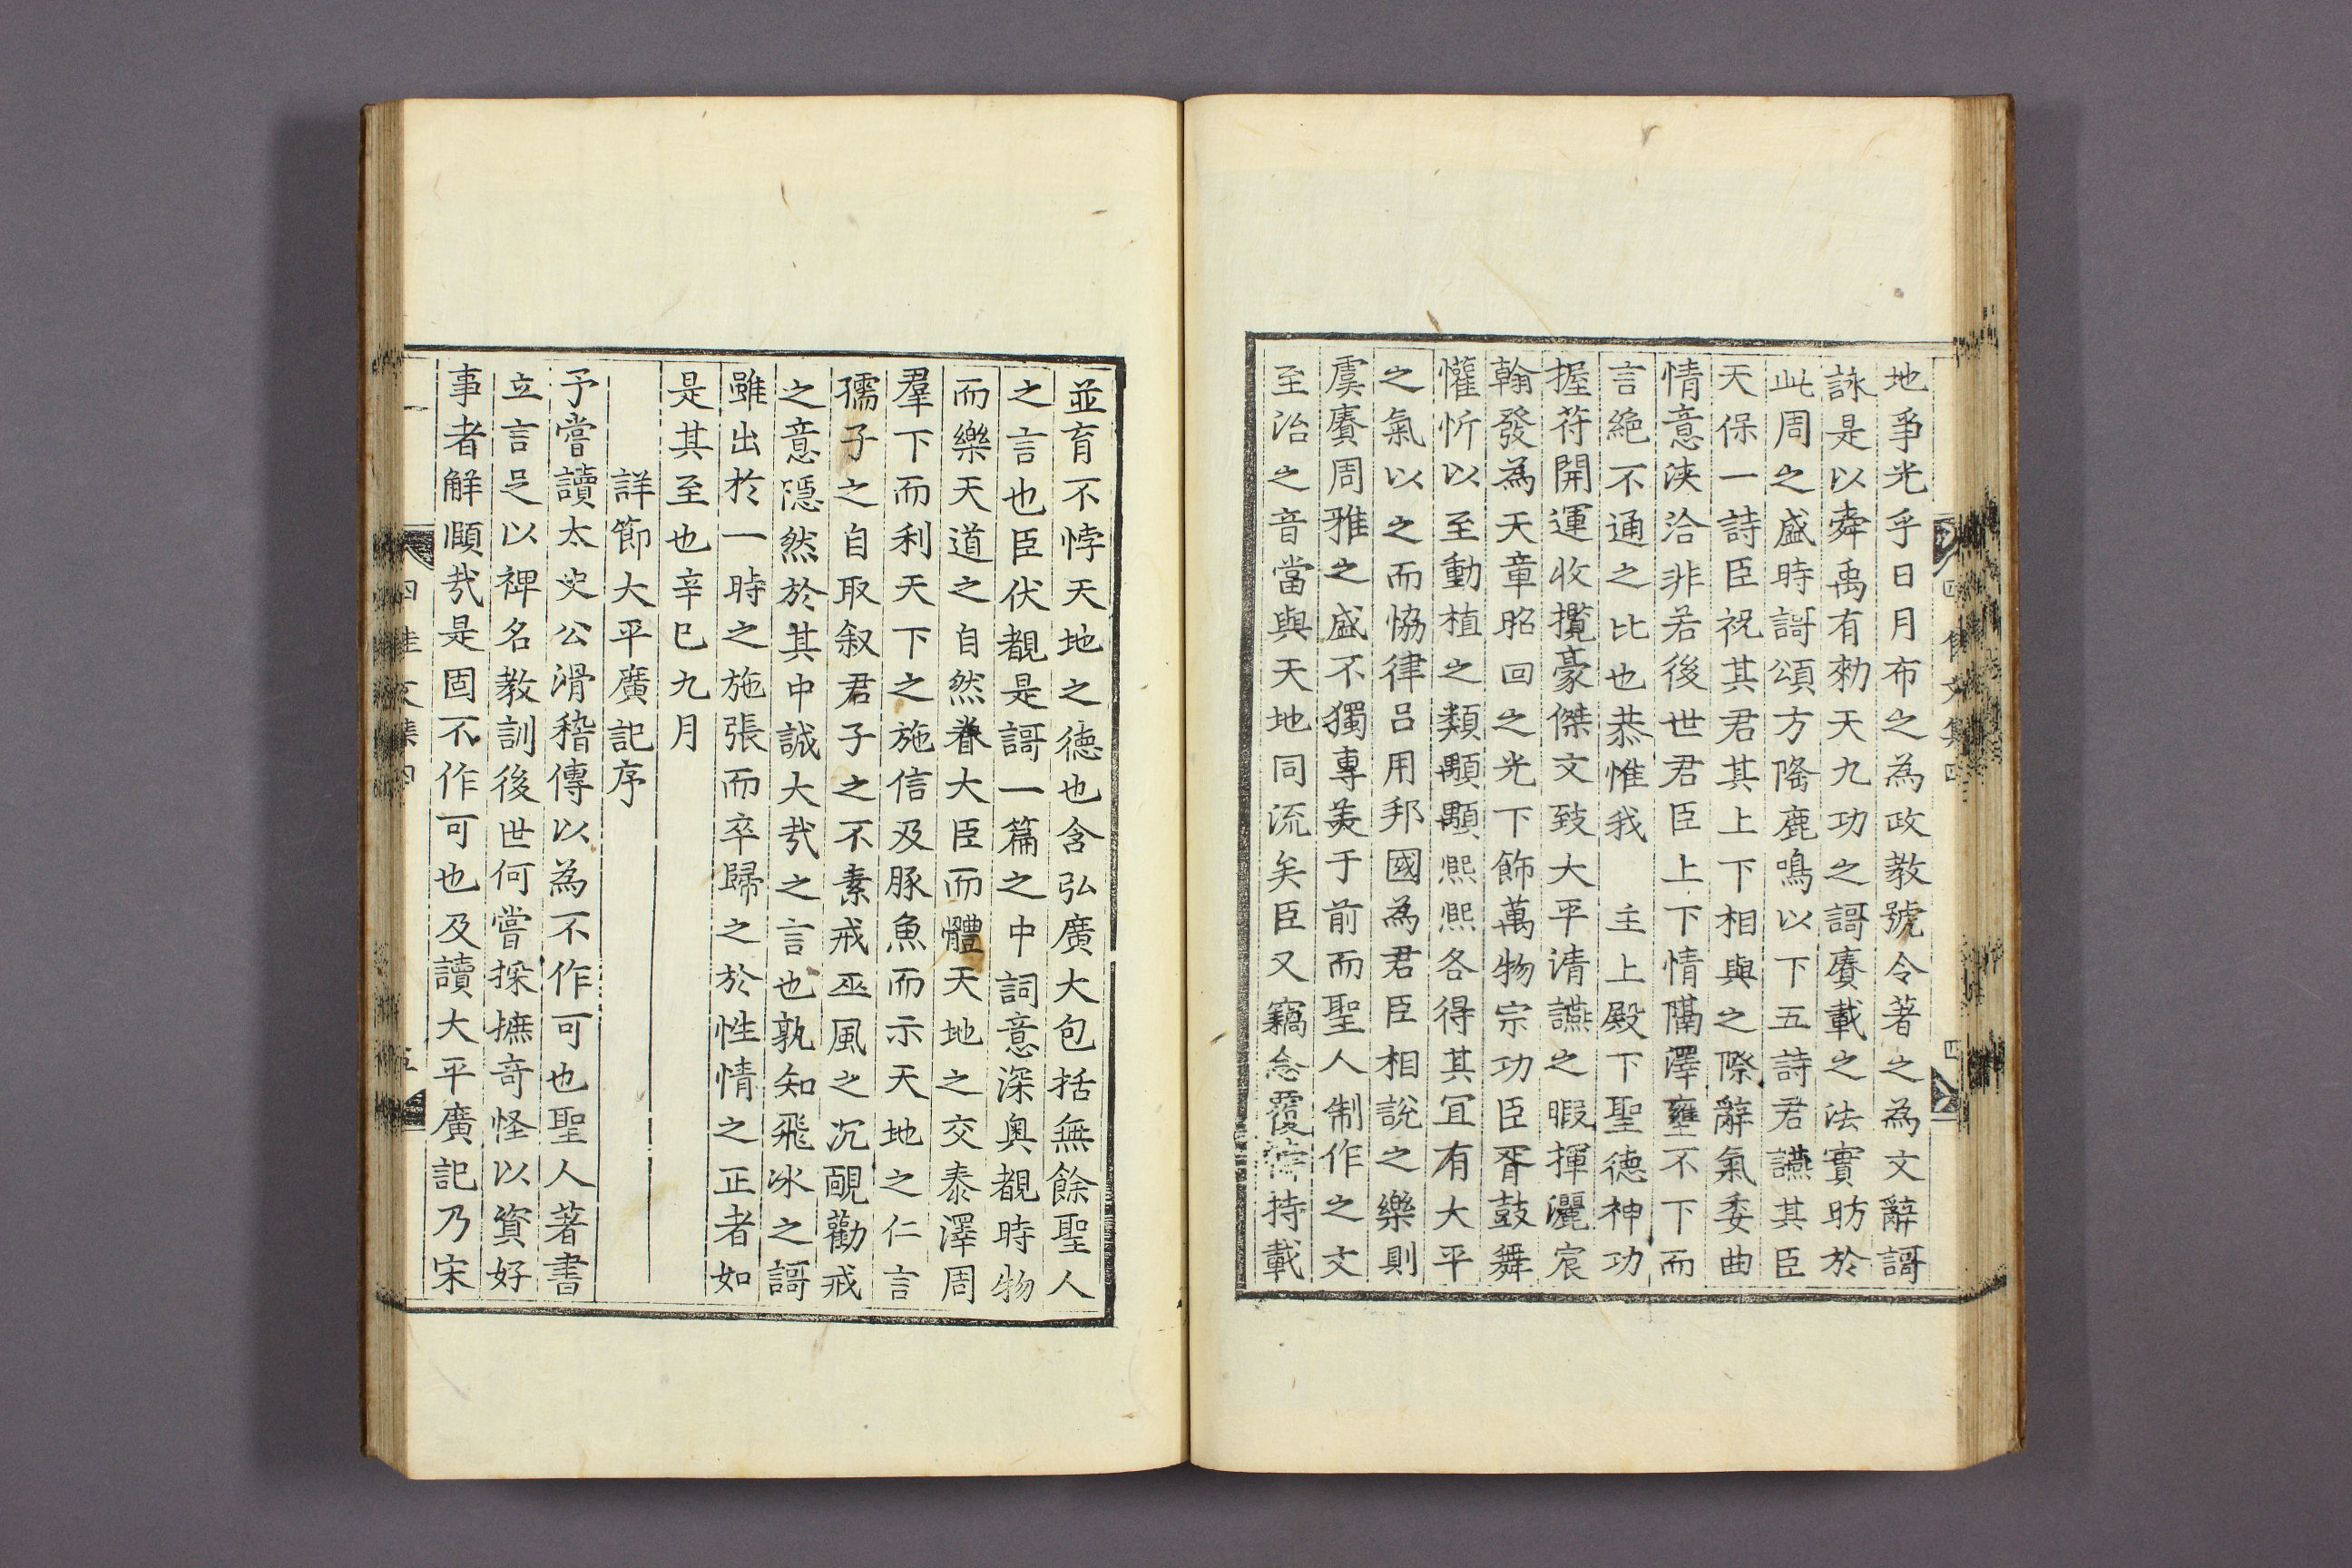 地爭光乎日月布之為政教號令著之為文辭謌
詠是以舜禹有勑天九功之謌賡載之法實昉於
此周之盛時謌頌方隆鹿鳴以下五詩君讌其臣
天保一詩臣祝其君其上下相與之際辭氣委曲
情意浹洽非若後世君臣上下情隔澤壅不下而
言絶不通之比也恭惟我　主上殿下聖德神功
握符開運收攬豪傑文致大平清讌之暇揮灑宸
翰發為天章昭回之光下飾萬物宗功臣胥鼓舞
懽忻以至動植之類顒顒熙熙各得其冝有大平
之氣以之而恊律呂用邦國為君臣相說之樂則
虞賡周雅之盛不獨專美于前而聖人制作之文
至治之音當與天地同流矣臣又竊念覆持載
並育不悖天地之德也含弘廣大包括無餘聖人
之言也臣伏覩是謌一篇之中詞意深奥覩時物
而樂天道之自然眷大臣而體天地之交泰澤周
羣下而利天下之施信及豚魚而示天地之仁言
孺子之自取叙君子之不素戒巫風之沉酗勸戒
之意隱然於其中誠大㢤之言也孰知飛冰之謌
雖出於一時之施張而卒歸之於性情之正者如
是其至也辛巳九月
詳節大平廣記序
予嘗讀太史公滑稽傳以為不作可也聖人著書
立言足以裨名教訓後世何嘗採摭奇怪以資好
事者解頤㢤是固不作可也及讀大平廣記乃宋
四 佳文集四 五
四 文集四 四